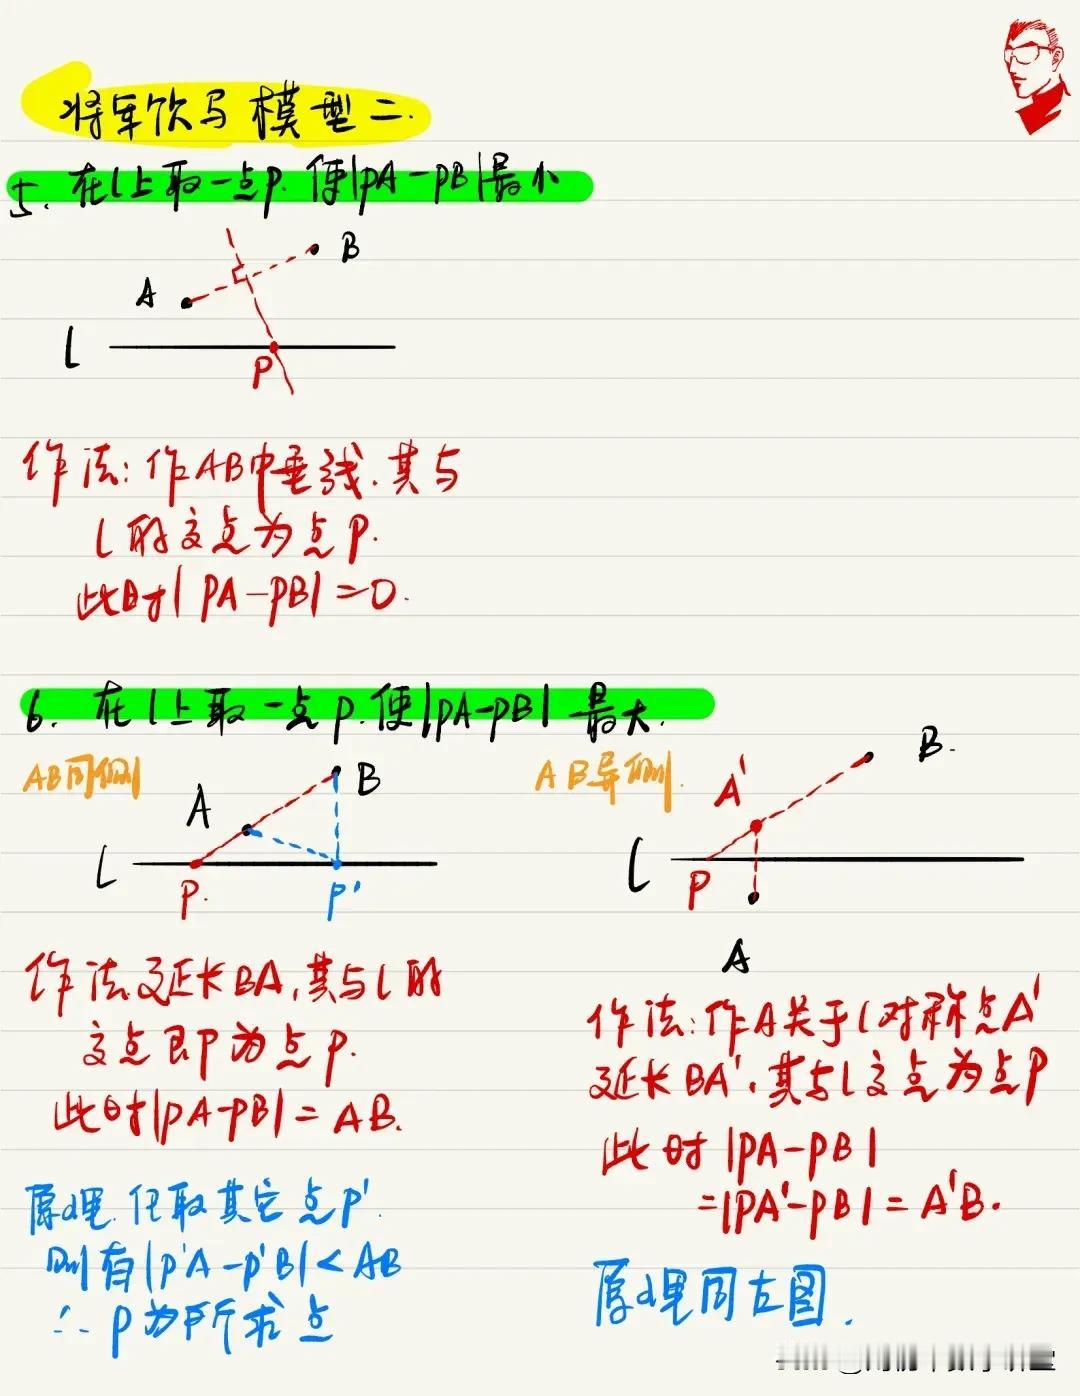 将军饮马模型二.
5. 在l上取一点P.使|PA-PB|最小
B
A
l
P
作法:作AB中垂线.其与
l的交点为点P.
此时|PA-PB|=0.
6. 在l上取一点P.使|PA-PB|最大.
AB同侧
A
B
l
P.
P'
作法延长BA,其与l的
交点即P为点P.
此时|PA-PB|=AB.
原理.任取其它点P'.
则有|P'A-P'B|<AB
∴P为所求点
AB异侧.
A'
B.
l
P
A
作法:作A关于l对称点A'
延长BA'.其与l交点为点P
此时|PA-PB|
=|PA'-PB|=A'B.
原理同左图.